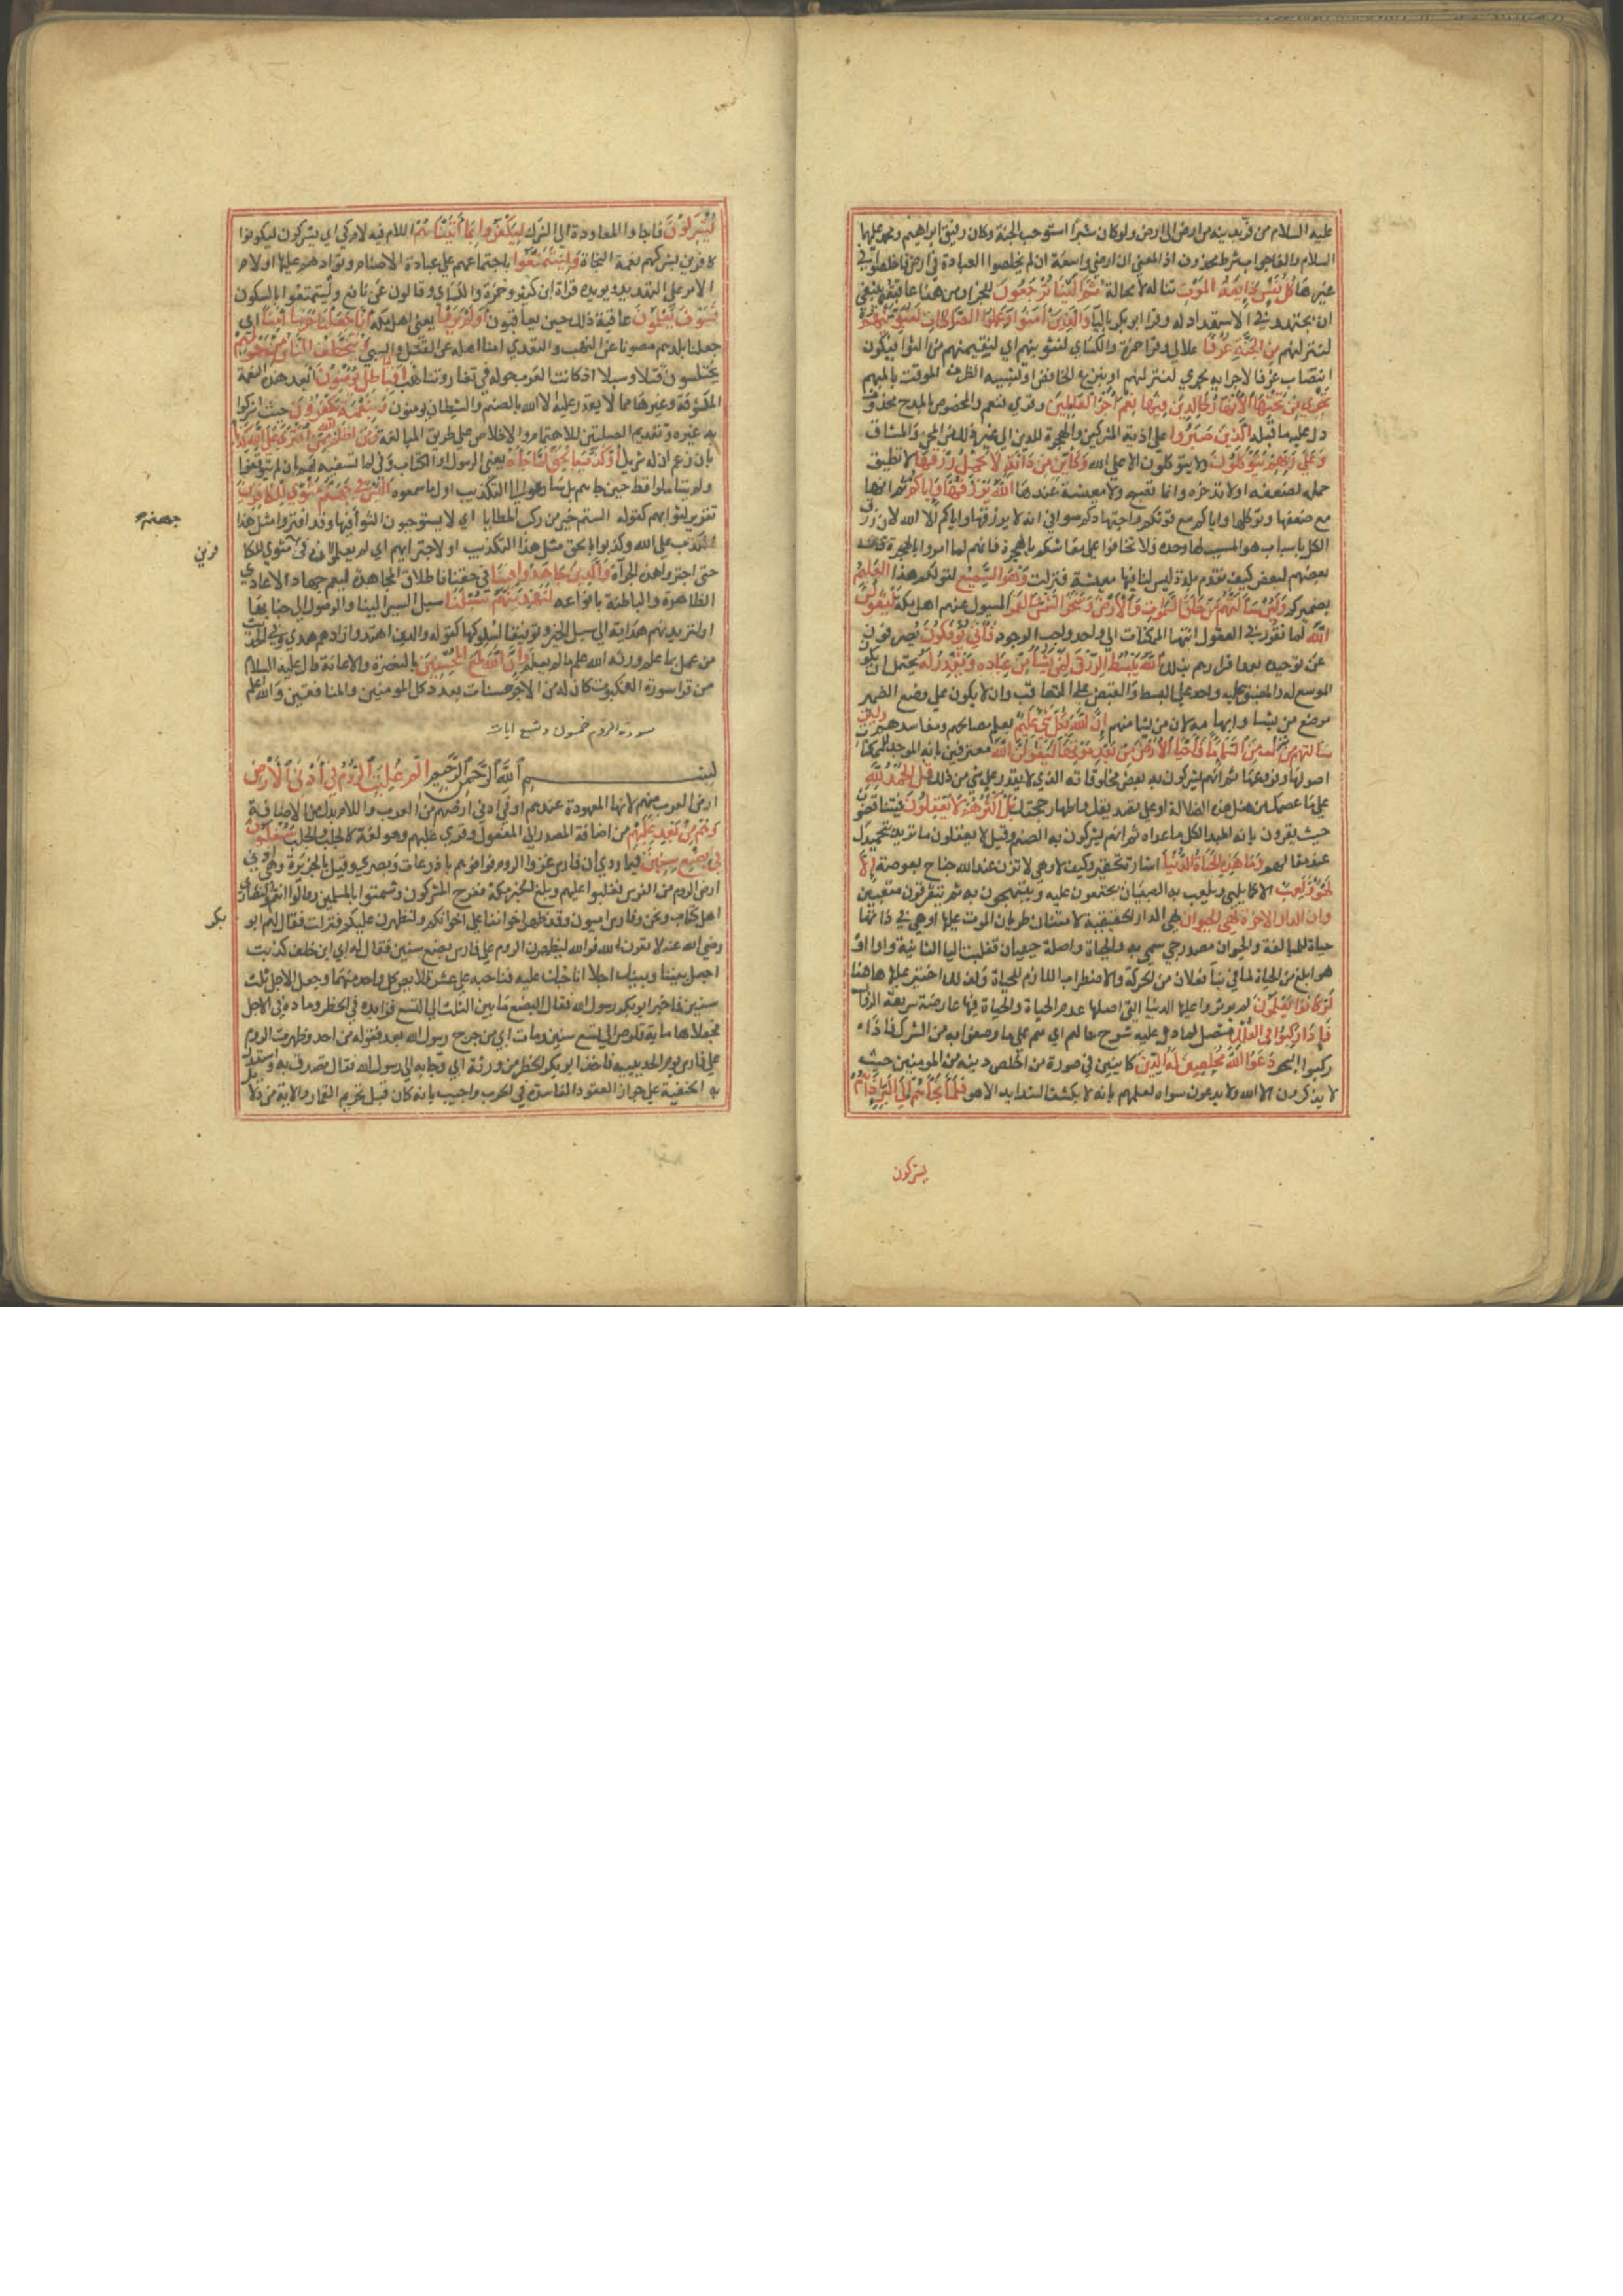 عليه السلام من فر بدينه من ارض الى ارض ولو كان شبرا استوجب الجنة وكان رفيق ابراهيم ومحمد عليهما
السلام والفا جواب شرط محذوف اذ المعنى ان ارضى واسعة ان لم تخلصوا العبادة في ارض فاخلصوا في
غيرها كل نفس ذائقة الموت تناله لا محالة ثم الينا ترجعون للجزا ومن هذا عاقبته ينبغى
ان يجتهد في الاستعداد له وقرا ابو بكر باليا والذين امنوا وعملوا الصالحات لنبوئنهم
لننزلنهم من الجنة غرفا علالى وقرا حمزة والكساى لنثوينهم اى لنقيمنهم من الثوا فيكون
انتصاب غرفا لاجرايه مجرى لننزلنهم او بنزع الخافض او تشبيه الظرف الموقت بالمبهم
تجرى من تحتها الانهار خالدين فيها نعم اجر العاملين وقرى فنعم والمخصوص بالمدح محذوف
دل عليه ما قبله الذين صبروا على اذية المشركين والهجرة للدين الى غير ذلك من المحن والمشاق
وعلى ربهم يتوكلون ولا يتوكلون الا على الله وكاين من دابة لا تحمل رزقها لا تطيق
حمله لضعفها ولا تدخره وانما تصبح ولا معيشة عندها الله يرزقها واياكم ثم انها
مع ضعفها وتوكلها واياكم مع قوتكم واجتهادكم سوا فى انه لا يرزقها واياكم الا الله لان رزق
الكل باسباب هو المسبب لها وحده فلا تخافوا على معاشكم بالهجرة فانهم لما امروا بالهجرة قال
بعضهم لبعض كيف نقدم بلدة ليس لنا فيها معيشة فنزلت وهو السميع لقولكم هذا العليم
بضميركم ولئن سالتهم من خلق السموات والارض وسخر الشمس والقمر المسيول عنهم اهل مكة ليقولن
الله لما تقرر فى العقول انتها الممكنات الى واحد واجب الوجود فانى يؤفكون يصرفون
عن توحيده بعد اقرارهم بذلك الله يبسط الرزق لمن يشا من عباده ويقدر له يحتمل ان يكون
الموسع له والمضيق عليه واحد على البسط والقبض على التعاقب وان لا يكون على وضع الضمير
موضع من يشا وابهامه لان من يشا مبهم ان الله بكل شى عليم يعلم مصالحهم ومفاسدهم ولئن
سالتهم من نزل من السما ما فاحيا به الارض من بعد موتها ليقولن الله معترفين بانه الموجد للممكنات
اصولها وفروعها ثم انهم يشركون به بعض مخلوقاته الذى لا يقدر على شى من ذلك قل الحمد لله
على ما عصمك من مثل هذه الضلالة او على تصديقك واظهار حجتك بل اكثرهم لا يعقلون فيتناقضون
حيث يقرون بانه المبدا لكل ما عداه ثم انهم يشركون به الصنم وقيل لا يعقلون ما تريد بتحميدك
عند مقالهم وما هذه الحياة الدنيا اشارة تحقير وكيف لا وهى لا تزن عند الله جناح بعوضة الا
لهو ولعب الا كما يلهى ويلعب به الصبيان يجتمعون عليه ويبتهجون به ثم يتفرقون متعبين
وان الدار الاخرة لهى الحيوان لهى دار الحياة الحقيقية لامتناع طريان الموت عليها او هى فى ذاتها
حياة للمبالغة والحيوان مصدر حى سمى به ذو الحياة واصله حييان فقلبت اليا الثانية واوا
هو ابلغ من الحياة لما فى بنا فعلان من الحركة والاضطراب اللازم للحياة ولذلك اختير عليها هاهنا
لو كانوا يعلمون لم يوثروا عليها الدنيا التى اصلها عدم الحياة والحياة فيها عارضة سريعة الزوال
فاذا ركبوا فى الفلك متصل بما دل عليه شرح حالهم اى هم على ما وصفوا به من الشرك فاذا
ركبوا البحر دعوا الله مخلصين له الدين كاينين فى صورة من اخلص دينه من المومنين حيث
لا يذكرون الا الله ولا يدعون سواه لعلمهم بانه لا يكشف الشدايد الا هو فلما نجاهم الى البر اذا هم
يشركون
يشركون فاجاوا المعاودة الى الشرك ليكفروا بما اتيناهم اللام فيه لام كى اى يشركون ليكونوا
كافرين بشركهم نعمة النجاة وليتمتعوا باجتماعهم على عبادة الاصنام وتوادهم عليها او لام
الامر على التهديد ويويده قراة ابن كثير وحمزة والكساى وقالون عن نافع وليتمتعوا بالسكون
فسوف يعلمون عاقبة ذلك حين يعاقبون اولم يروا يعنى اهل مكة انا جعلنا حرما امنا اى
جعلنا بلدهم مصونا عن النهب والتعدى امنا اهله عن القتل والسبى ويتخطف الناس من حولهم
يختلسون قتلا وسبيا اذ كانت العرب حوله فى تغاور وتناهب افبالباطل يومنون ابعد هذه النعمة
المكشوفة وغيرها مما لا يقدر عليه الا الله بالصنم والشيطان يومنون وبنعمة الله يكفرون حيث اشركوا
به غيره وتقديم الصلتين للاهتمام والاختصاص على طريق المبالغة ومن اظلم ممن افترى على الله كذبا
بان زعم ان له شريكا او كذب بالحق لما جاه يعنى الرسول او الكتاب وفى لما تسفيه لهم بان لم يتوقفوا
ولم يتاملوا قط حين جاهم بل سارعوا الى التكذيب اول ما سمعوه اليس فى جهنم مثوى للكافرين
تقرير لثوايهم كقوله الستم خير من ركب المطايا اى لا يستوجبون الثوا فيها وقد افتروا مثل هذا
الكذب على الله وكذبوا بالحق مثل هذا التكذيب او لاجترايهم اى الم يعلموا ان فى مثوى للكا
حتى اجتروا هذه الجراة والذين جاهدوا فينا فى حقنا فاطلاق المجاهدة ليعم جهاد الاعادى
الظاهرة والباطنة بانواعه لنهدينهم سبلنا سبل السير الينا والوصول الى جنابنا
او لنزيدنهم هداية الى سبيل الخير وتوفيقا لسلوكها كقوله والذين اهتدوا زادهم هدى وفى الحديث
من عمل بما علم ورثه الله علم ما لم يعلم وان الله لمع المحسنين بالنصرة والاعانة قال عليه السلام
من قرا سورة العنكبوت كان له من الاجر حسنات بعدد كل المومنين والمنافقين والله اعلم
سورة الروم خمسون وتسع ايات
بسم الله الرحمن الرحيم الم غلبت الروم فى ادنى الارض
ارض العرب منهم لانها المعهودة عندهم او فى ادنى ارضهم من العرب واللام بدل من الاضافة
وهم من بعد غلبهم من اضافة المصدر الى المفعول وقرى غلبهم وهو لغة كالجلب والحلب سيغلبون
فى بضع سنين فيما روى ان فارس غزوا الروم فوافوهم باذرعات وبصرى وقيل بالجزيرة وهى ادنى
ارض الروم من الفرس فغلبوا عليهم وبلغ الخبر مكة ففرح المشركون وشمتوا بالمسلمين وقالوا انتم والنصارى
اهل كتاب ونحن وفارس اميون وقد ظهر اخواننا على اخوانكم ولنظهرن عليكم فنزلت فقال لهم ابو
رضى الله عنه لا يقرن الله فوالله ليظهرن الروم على فارس بضع سنين فقال له ابى ابن خلف كذبت
اجعل بيننا وبينك اجلا اناحبك عليه فناحبه على عشر قلايص كل واحد منهما وجعل الاجل ثلث
سنين فاخبر ابو بكر رسول الله فقال البضع ما بين الثلث الى التسع فزايده فى الخطر وماده فى الاجل
فجعلاها ماية قلوص الى تسع سنين ومات ابى من جرح رسول الله بعد قفوله من احد وظهرت الروم
على فارس يوم الحديبية فاخذ ابو بكر الخطر من ورثة ابى وجا به الى رسول الله فقال تصدق به واستدل
به الحنفية على جواز العقود الفاسدة فى الحرب واجيب بانه كان قبل تحريم القمار والاية من دلا
جهنم
فرين
بكر